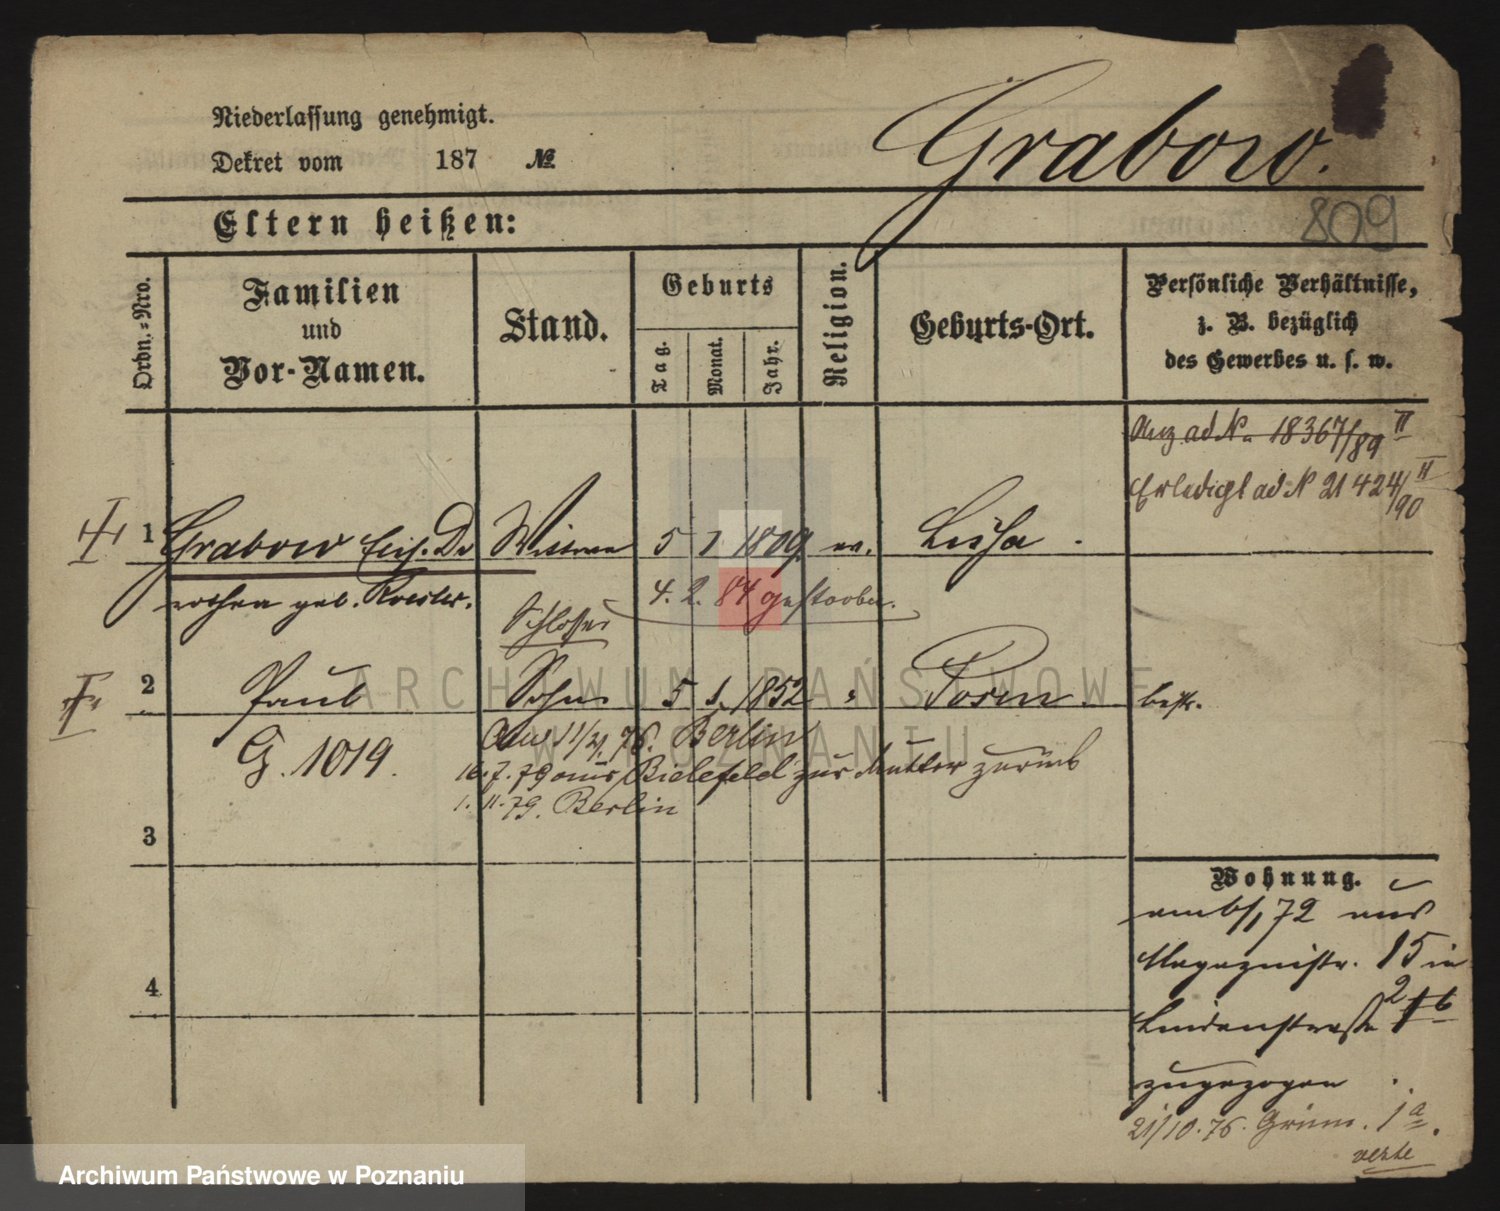 Niederlassung genehmigt.
Dekret vom 187 №
Grabow.
809
Eltern heißen:
Ordn.-Nro.
Familien und Vor-Namen.
Stand.
Geburts
Tag.
Monat.
Jahr.
Religion.
Geburts-Ort.
Persönliche Verhältnisse,
z. B. bezüglich
des Gewerbes u. s. w.
ad N. 18367/89 II
Erledigt ad N 21424/90 II
1 Grabow Do Wittwe 5 1 1809 ev. Lissa.
rothea geb. Roesler.
4. 2. 84 gestorben.
Schlosser
2 Paul Sohn 5 1. 1852 " Posen.
G. 1019.
76. Berlin
16.7.79 aus Bielefeld zur Mutter zurück
1.11.79. Berlin
3
4
Wohnung.
72 aus
Magazinstr. 15 in
Lindenstrasse 2
zugezogen
21/10.76. 1a.
verte
ARCHIWUM PAŃSTWOWE
W POZNANIU
Archiwum Państwowe w Poznaniu